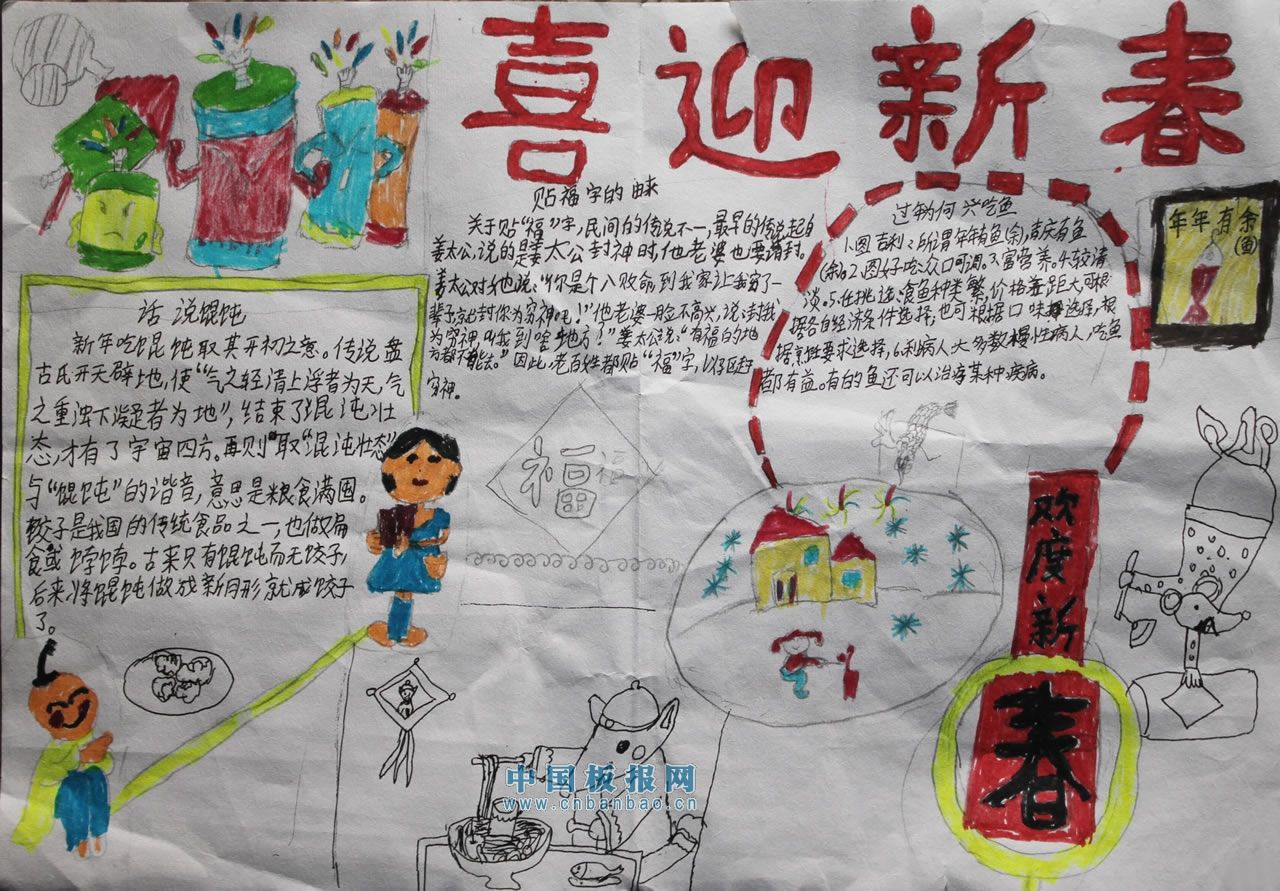 喜迎新春
贴福字的由来
关于贴“福”字,民间的传说不一,最早的传说起自
姜太公,说的是姜太公封神时,他老婆也要请封。
姜太公对她说:“你是个八败命,到我家让我穷了一
辈子,就封你为穷神吧!”他老婆一脸不高兴,说:“封我
为穷神,叫我到啥地方?”姜太公说:“有福的地
方都不能去。”因此,老百姓都贴“福”字,以驱赶
穷神。
过年为何兴吃鱼
1.图吉利:所谓年年有鱼(余),吉庆有鱼
(余)。2.图好吃:众口可调。3.富营养。4.较清
淡。5.任挑选:食鱼种类繁,价格差距大,可根
据各自经济条件选择,也可根据口味选择,根
据烹饪要求选择,6.利病人:大多数慢性病人,吃鱼
都有益。有的鱼还可以治疗某种疾病。
年年有余
(鱼)
话说馄饨
新年吃馄饨取其开初之意。传说盘
古氏开天辟地,使“气之轻清上浮者为天,气
之重浊下凝者为地”,结束了混沌壮
态,才有了宇宙四方。再则取“混沌壮态”
与“馄饨”的谐音,意思是粮食满囤。
饺子是我国的传统食品之一,也做扁
食或饽饽。古来只有馄饨而无饺子,
后来将馄饨做成新月形就成饺子
了。
福 福
欢度新
春
中国板报网
www.cnbanbao.cn